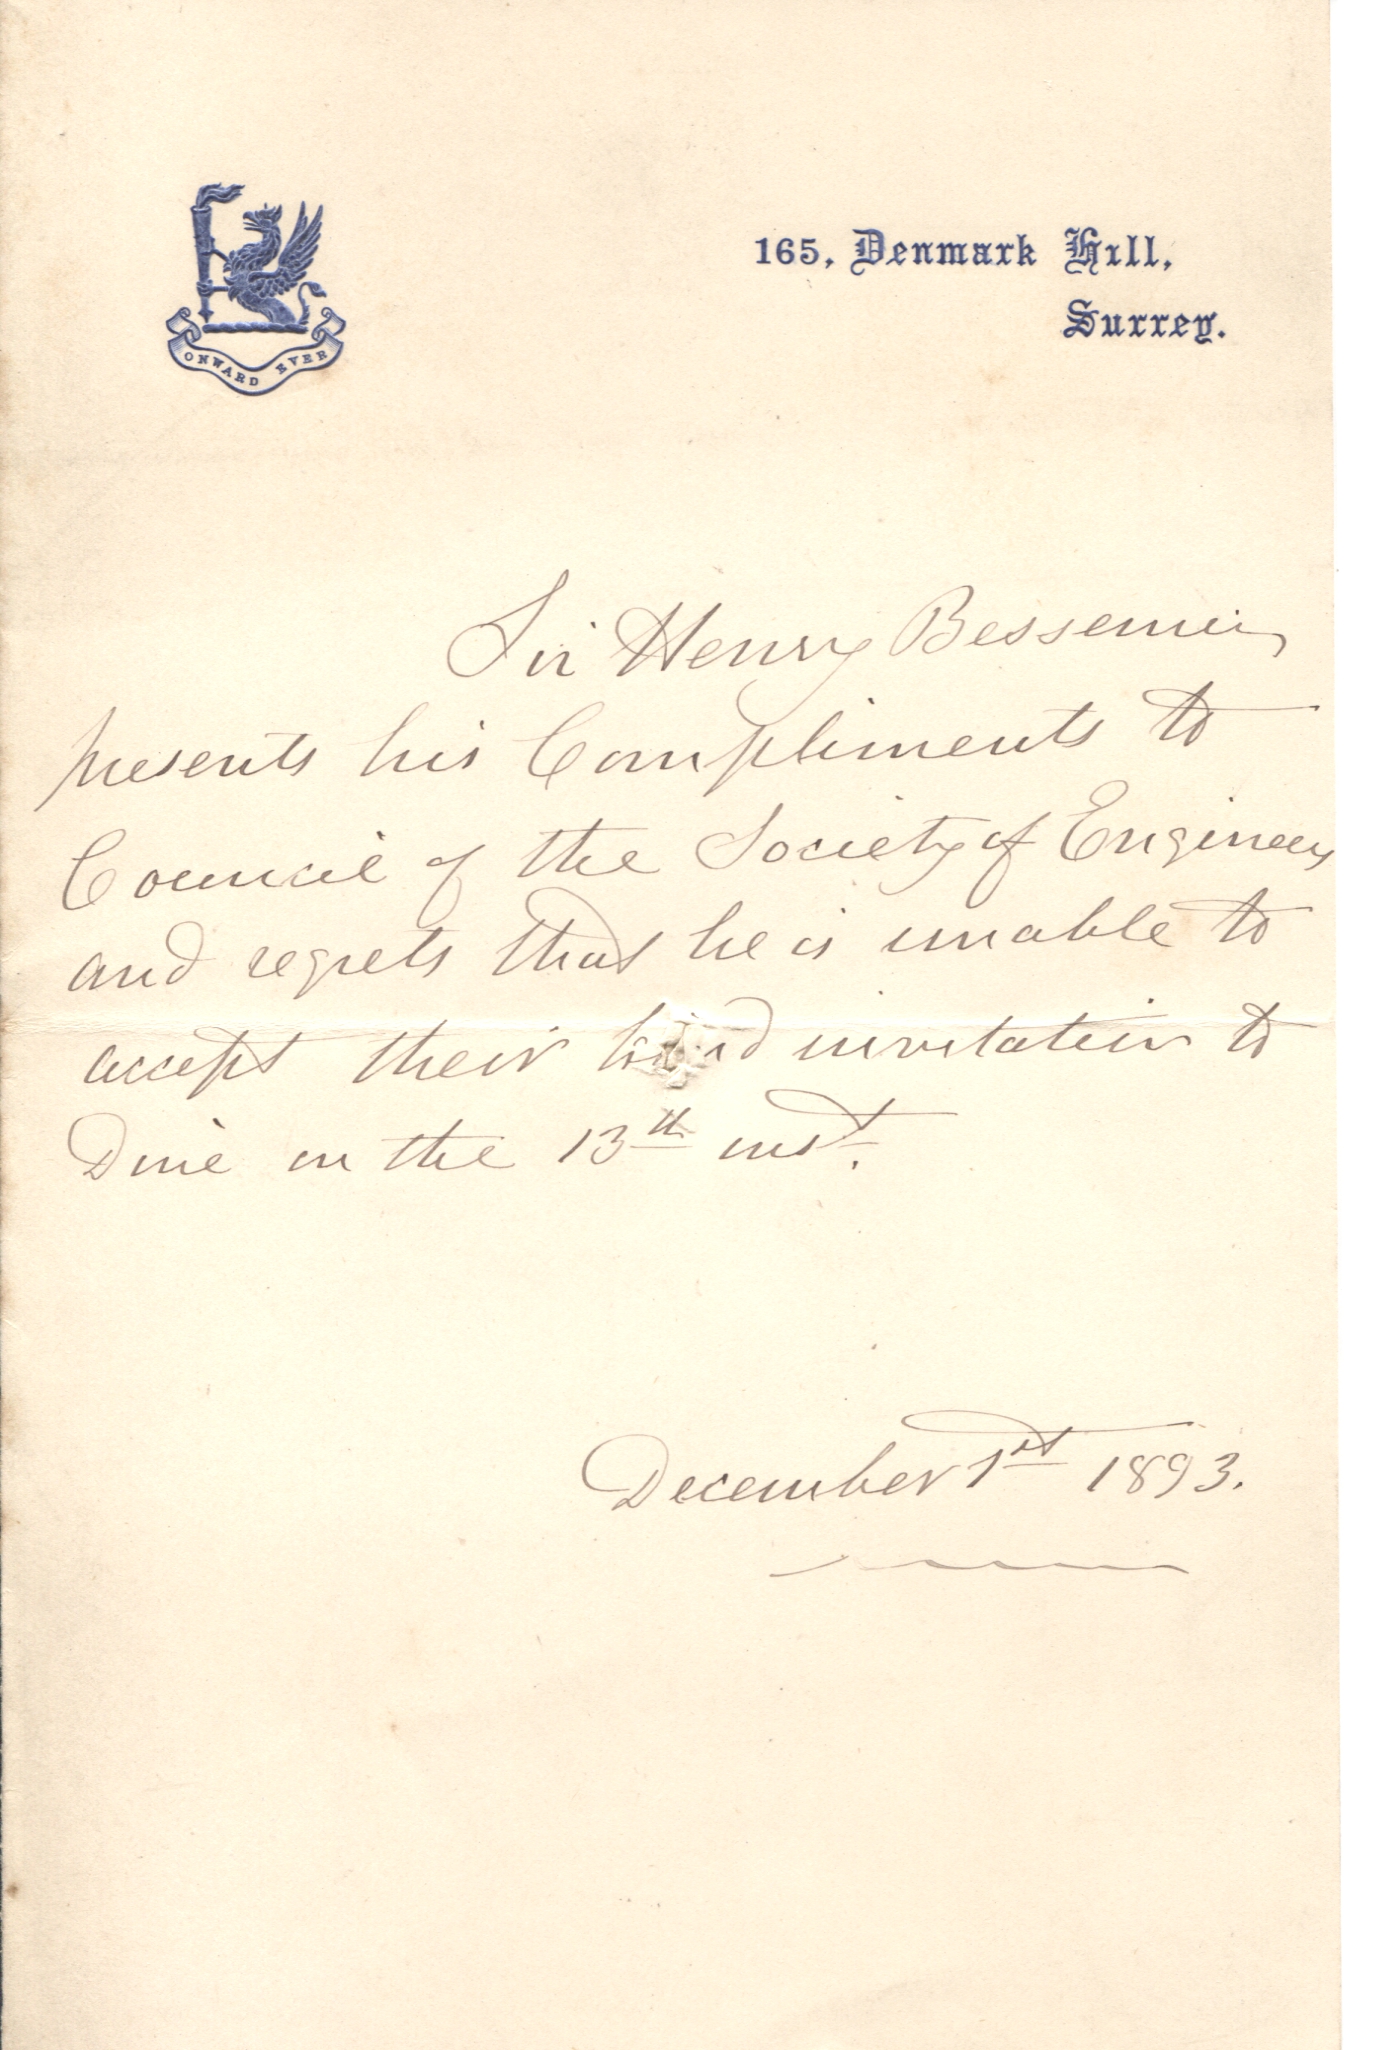 ONWARD EVER
165, Denmark Hill,
Surrey.
Sir Henry Bessemer
presents his Compliments to
Council of the Society of Engineers
and regrets that he is unable to
accept their kind invitation to
Dine on the 13th inst.
December 1st 1893.